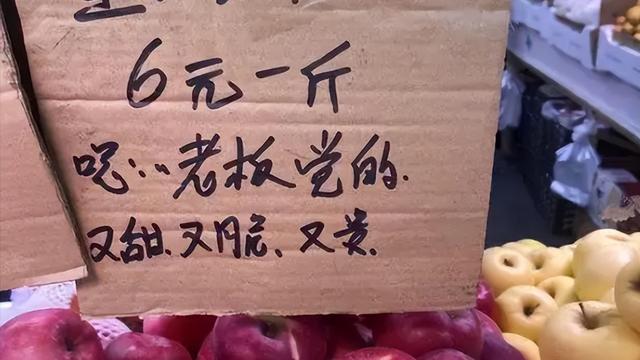 6元一斤
呢:··老板觉的.
又甜.又脆.又贵.